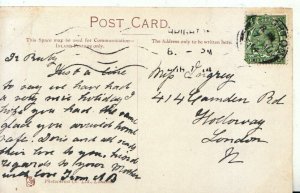 POST CARD.
This Space may be used for Communication
Inland Postage only.
The Address only to be written here.
Dr Ruby
Just a line
to say we have had
a very nice holiday
hope you had the same
glad you arrived home
safe. Doris and all send
their love to you, kind
regards to your Mother
with love from
Miss
414 Camden Rd
Holloway
London
N